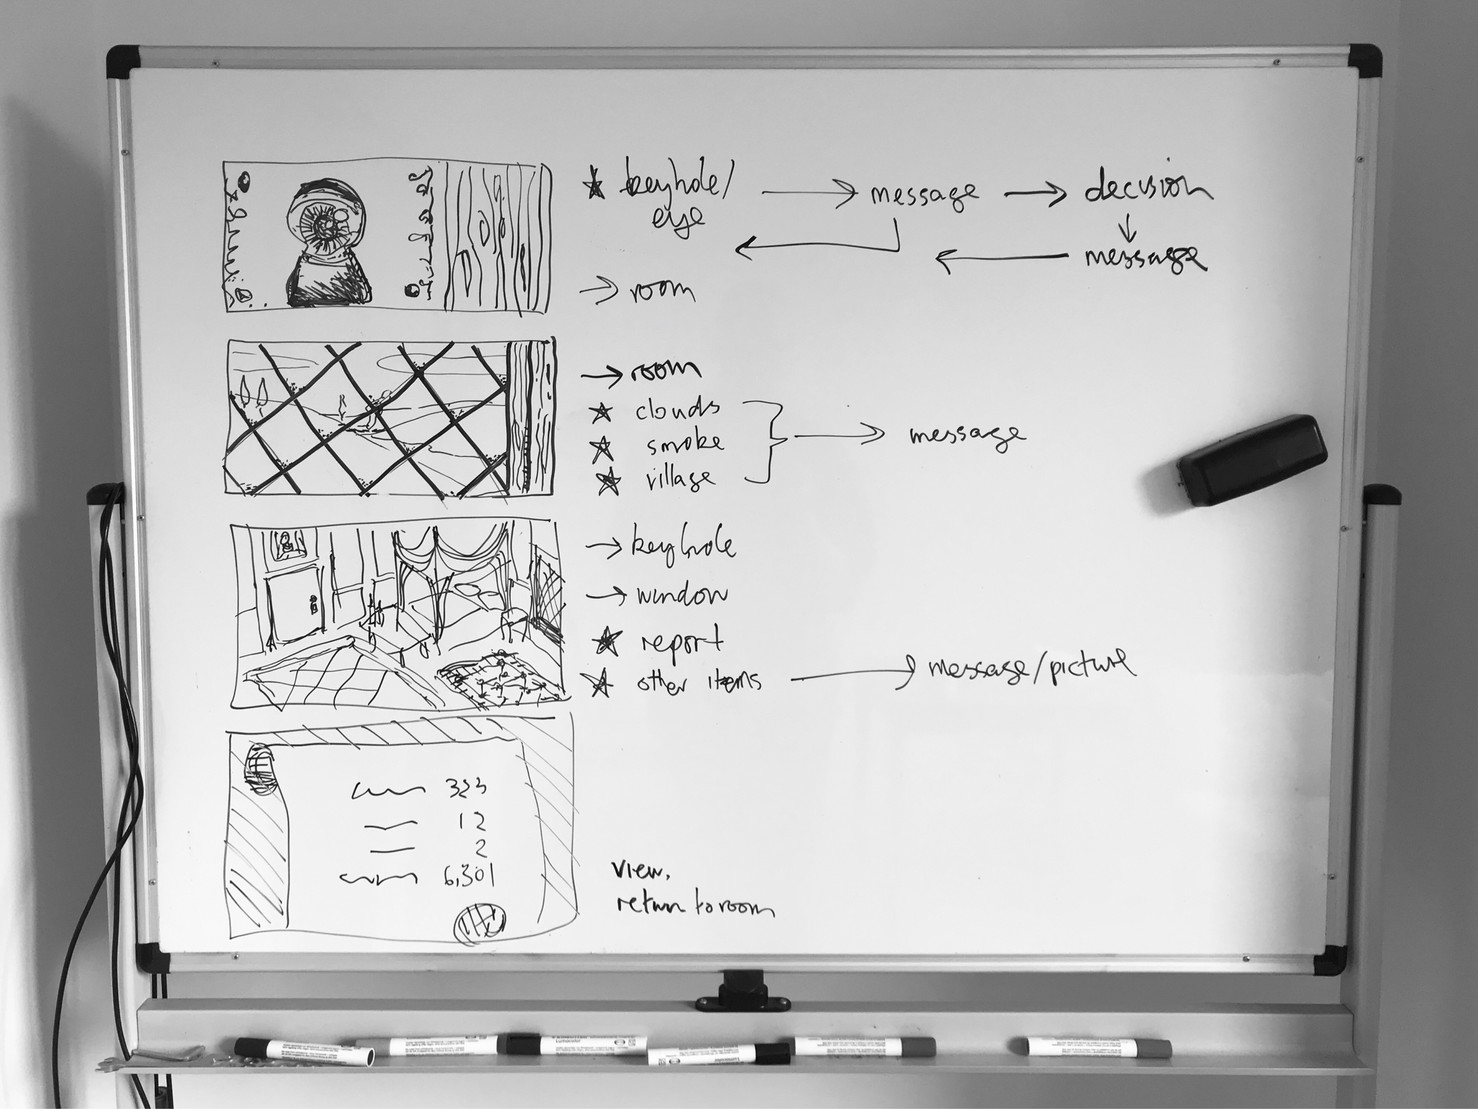 keyhole/ → message → decision
eye
message
→ room
→ room
clouds
smoke → message
village
→ keyhole
→ window
report
other items → message/picture
323
12
2
6,301
view,
return to room